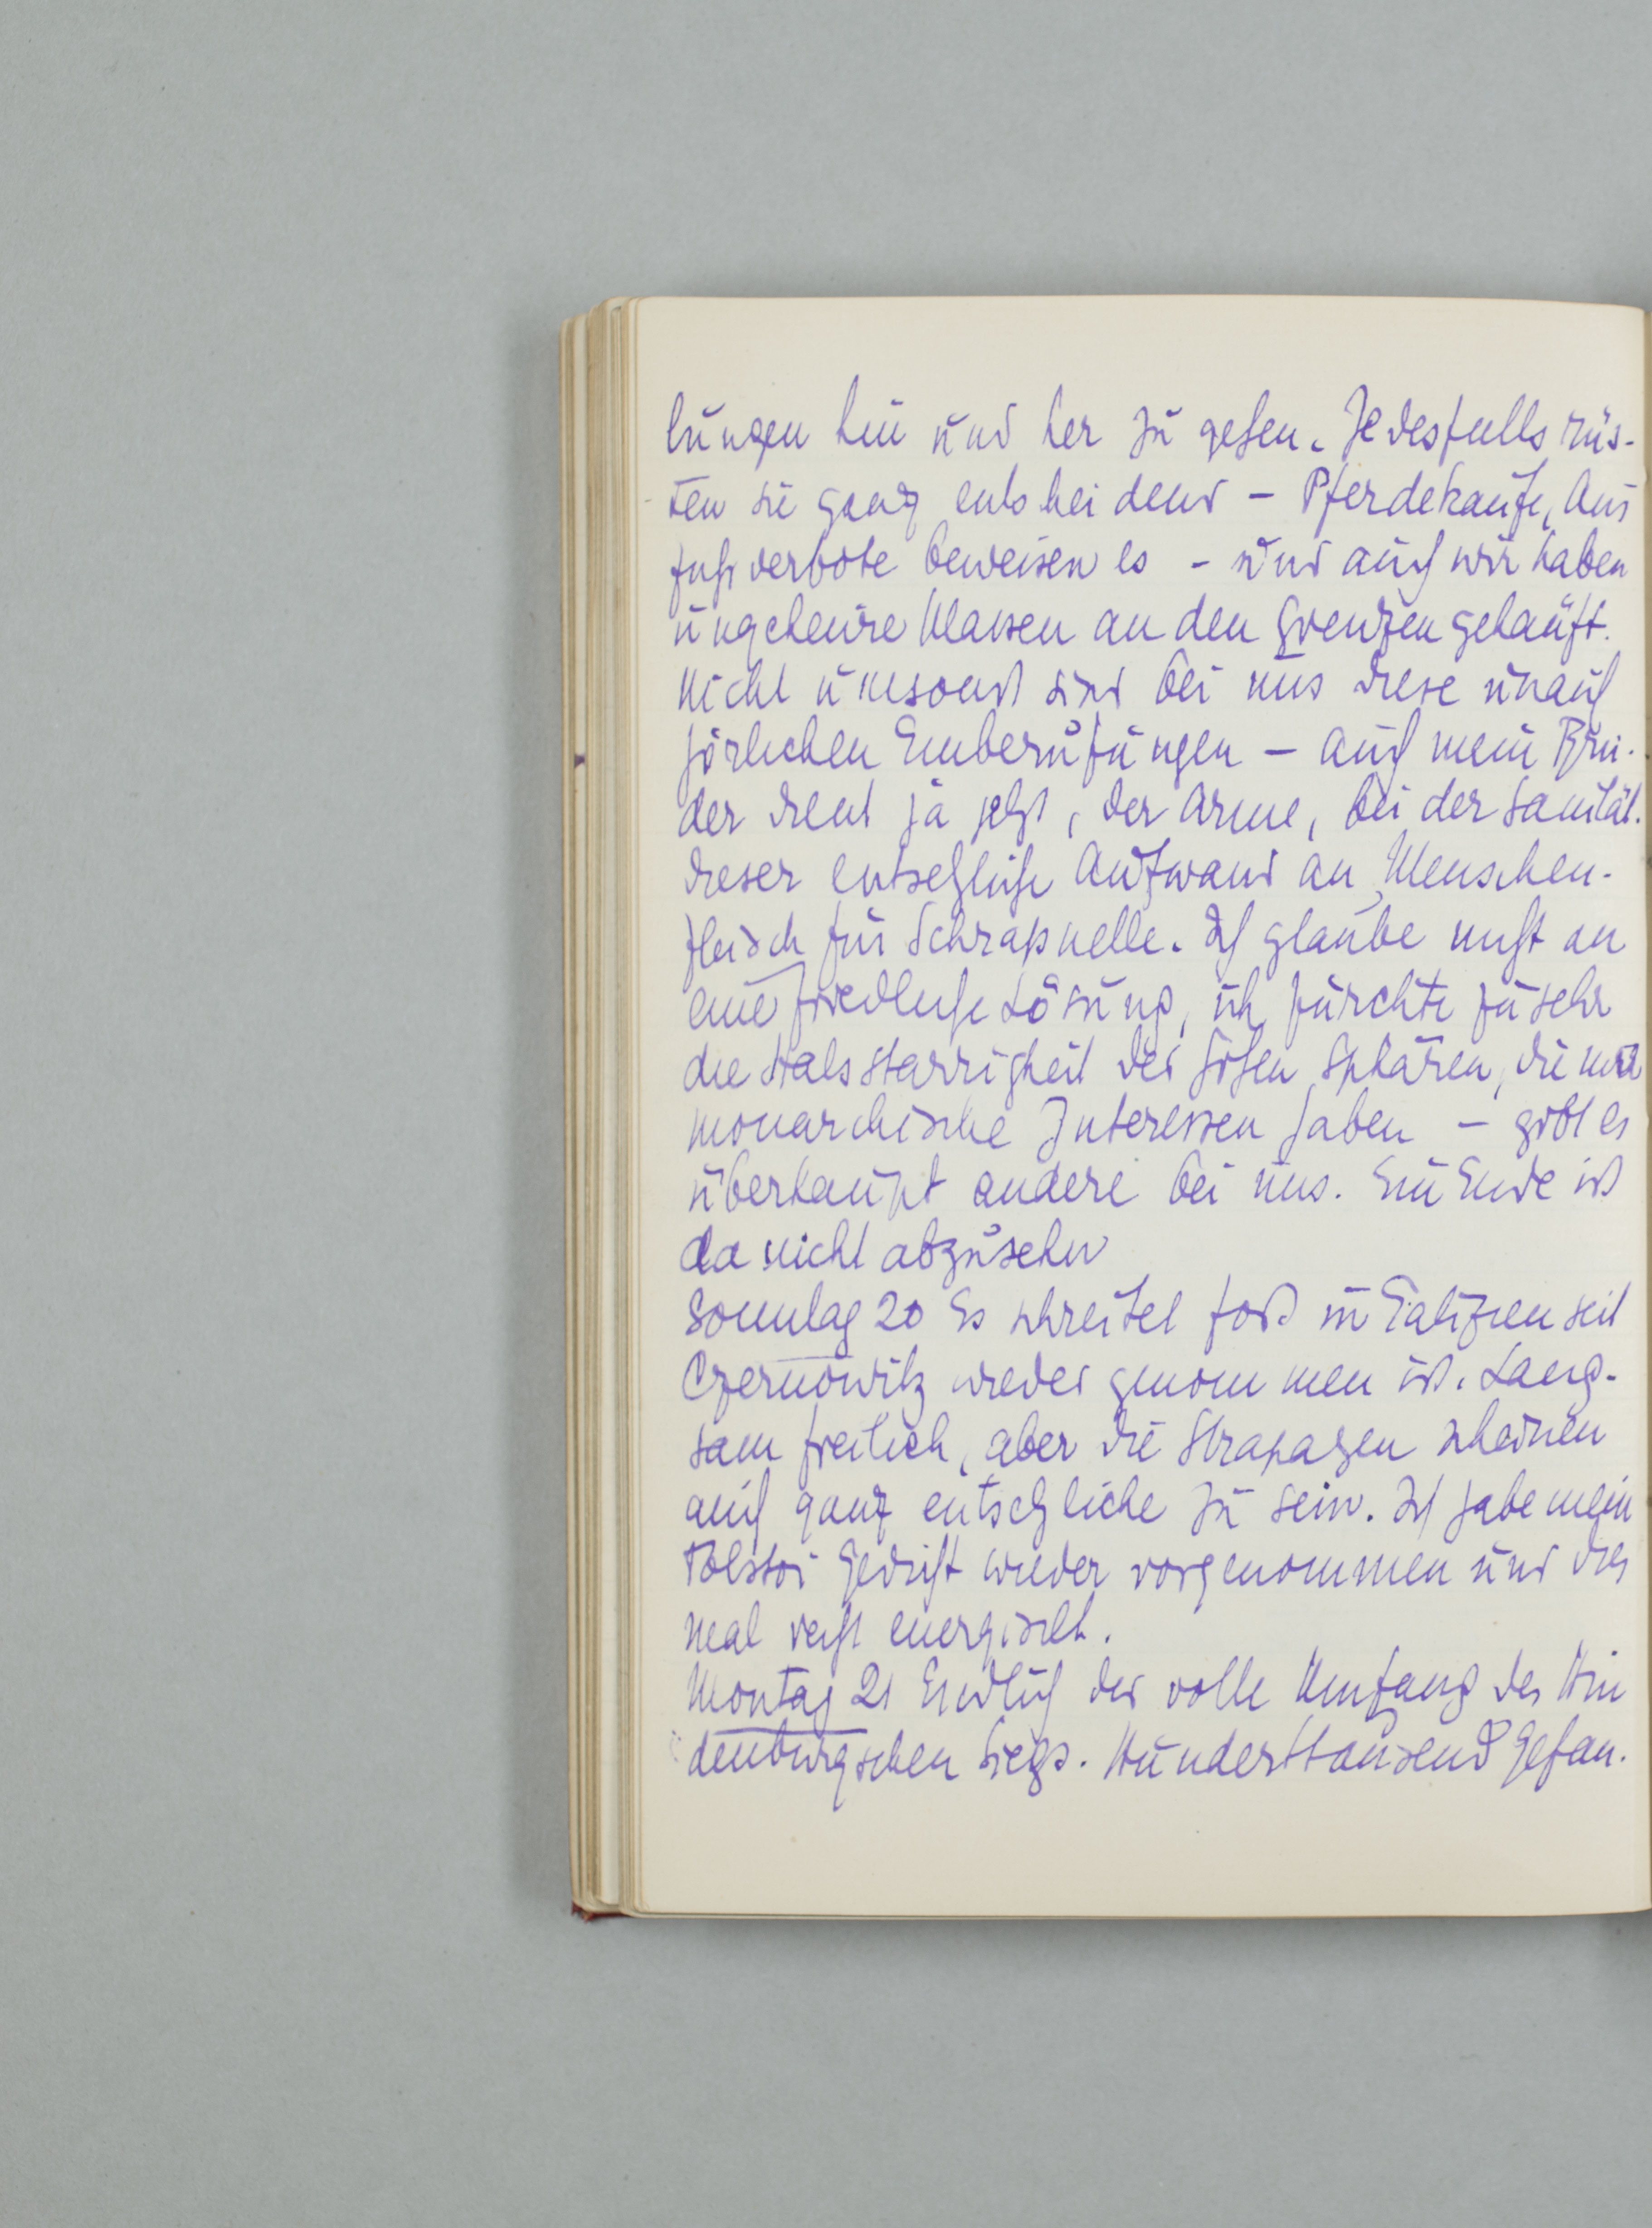 lungen hin und her zu gehen. Jedesfalls rüs-
ten sie ganz entscheidend – Pferdekäufe, Aus
fuhrverbote beweisen es – und auch wir haben
ungeheure Massen an den Grenzen gehäuft.
Nicht umsonst sind bei uns diese unauf
hörlichen Einberufungen – auch mein Bru-
der dient ja jetzt, der Arme, bei der Sanität.
Dieser entsetzliche Aufwand an Menschen-
fleisch für Schrapnelle. Ich glaube nicht an
eine friedliche Lösung, ich fürchte zu sehr
die Halsstarrigkeit der hohen Sphären, die nur
monarchische Interessen haben – gibt es
überhaupt andere bei uns. Ein Ende ist
da nicht abzusehn
Sonntag 20 Es schreitet fort in Galizien seit
Czernowitz wieder genommen ist. Lang-
sam freilich, aber die Strapazen scheinen
auch ganz entsetzliche zu sein. Ich habe mein
Tolstoi Gedicht wieder vorgenommen und dies
mal recht energisch.
Montag 21 Endlich der volle Umfang des Hin
denburgschen Siegs. Hunderttausend Gefan-